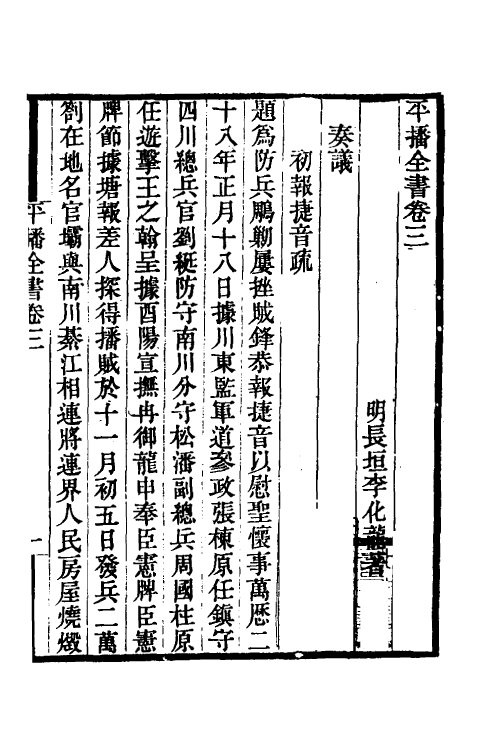 平播全書卷三
明長垣李化龍著
奏議
初報捷音疏
題為防兵鵰勦屢挫賊鋒恭報捷音以慰聖懷事萬歷二
十八年正月十八日據川東監軍道參政張棟原任鎮守
四川總兵官劉綎防守南川分守松潘副總兵周國柱原
任遊擊王之翰呈據酉陽宣撫冉御龍申奉臣憲牌臣憲
牌節據塘報差人探得播賊於十一月初五日發兵二萬
劄在地名官壩與南川綦江相連將連界人民房屋燒燬
平播全書卷三
一